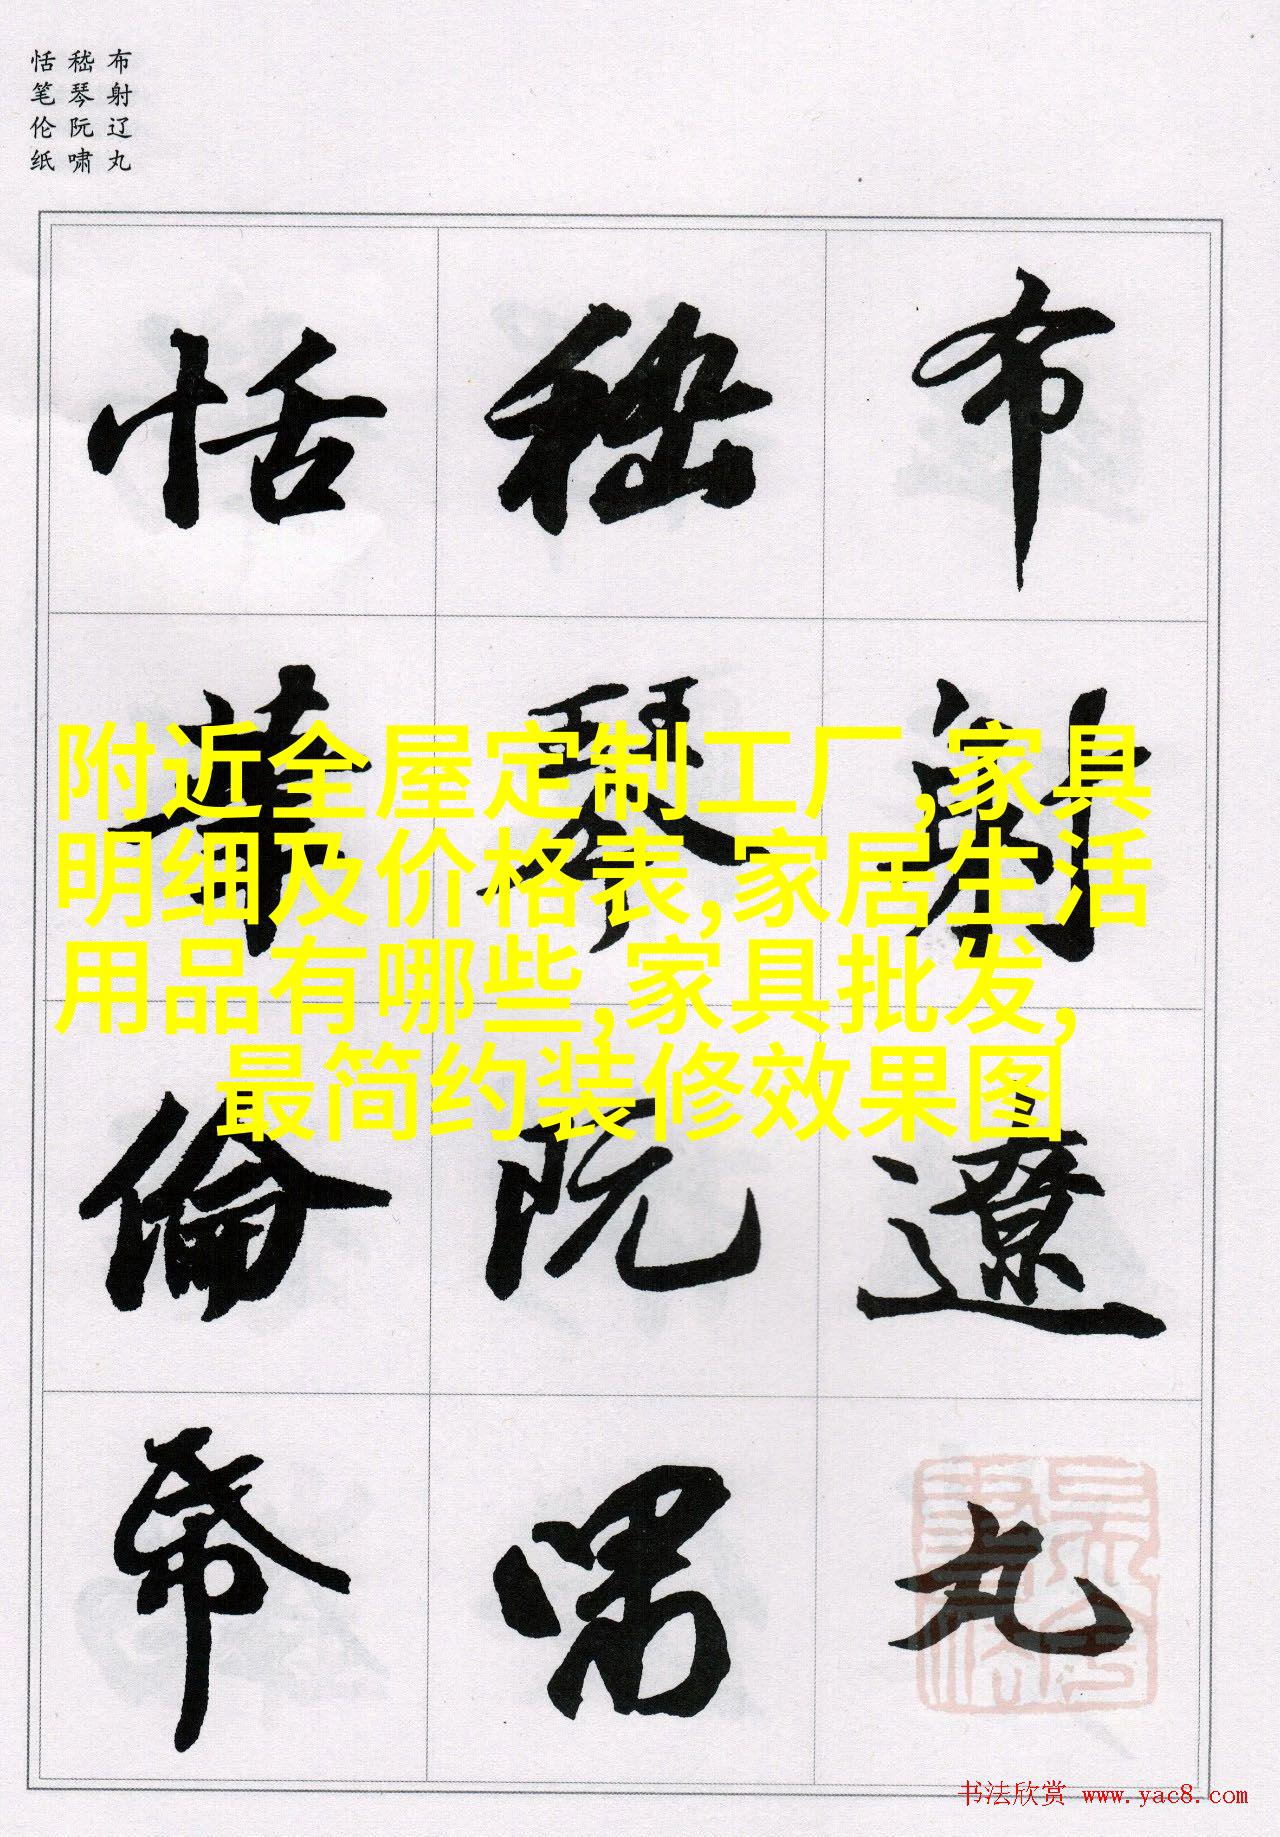 布射辽丸
嵇琴阮啸
恬笔伦纸
布射遼丸
嵇琴阮嘯
恬筆倫帋
附近全屋定制工厂,家具
明细及价格表,家居生活
用品有哪些,家具批发,
最简约装修效果图
书法欣赏 www.yac8.com